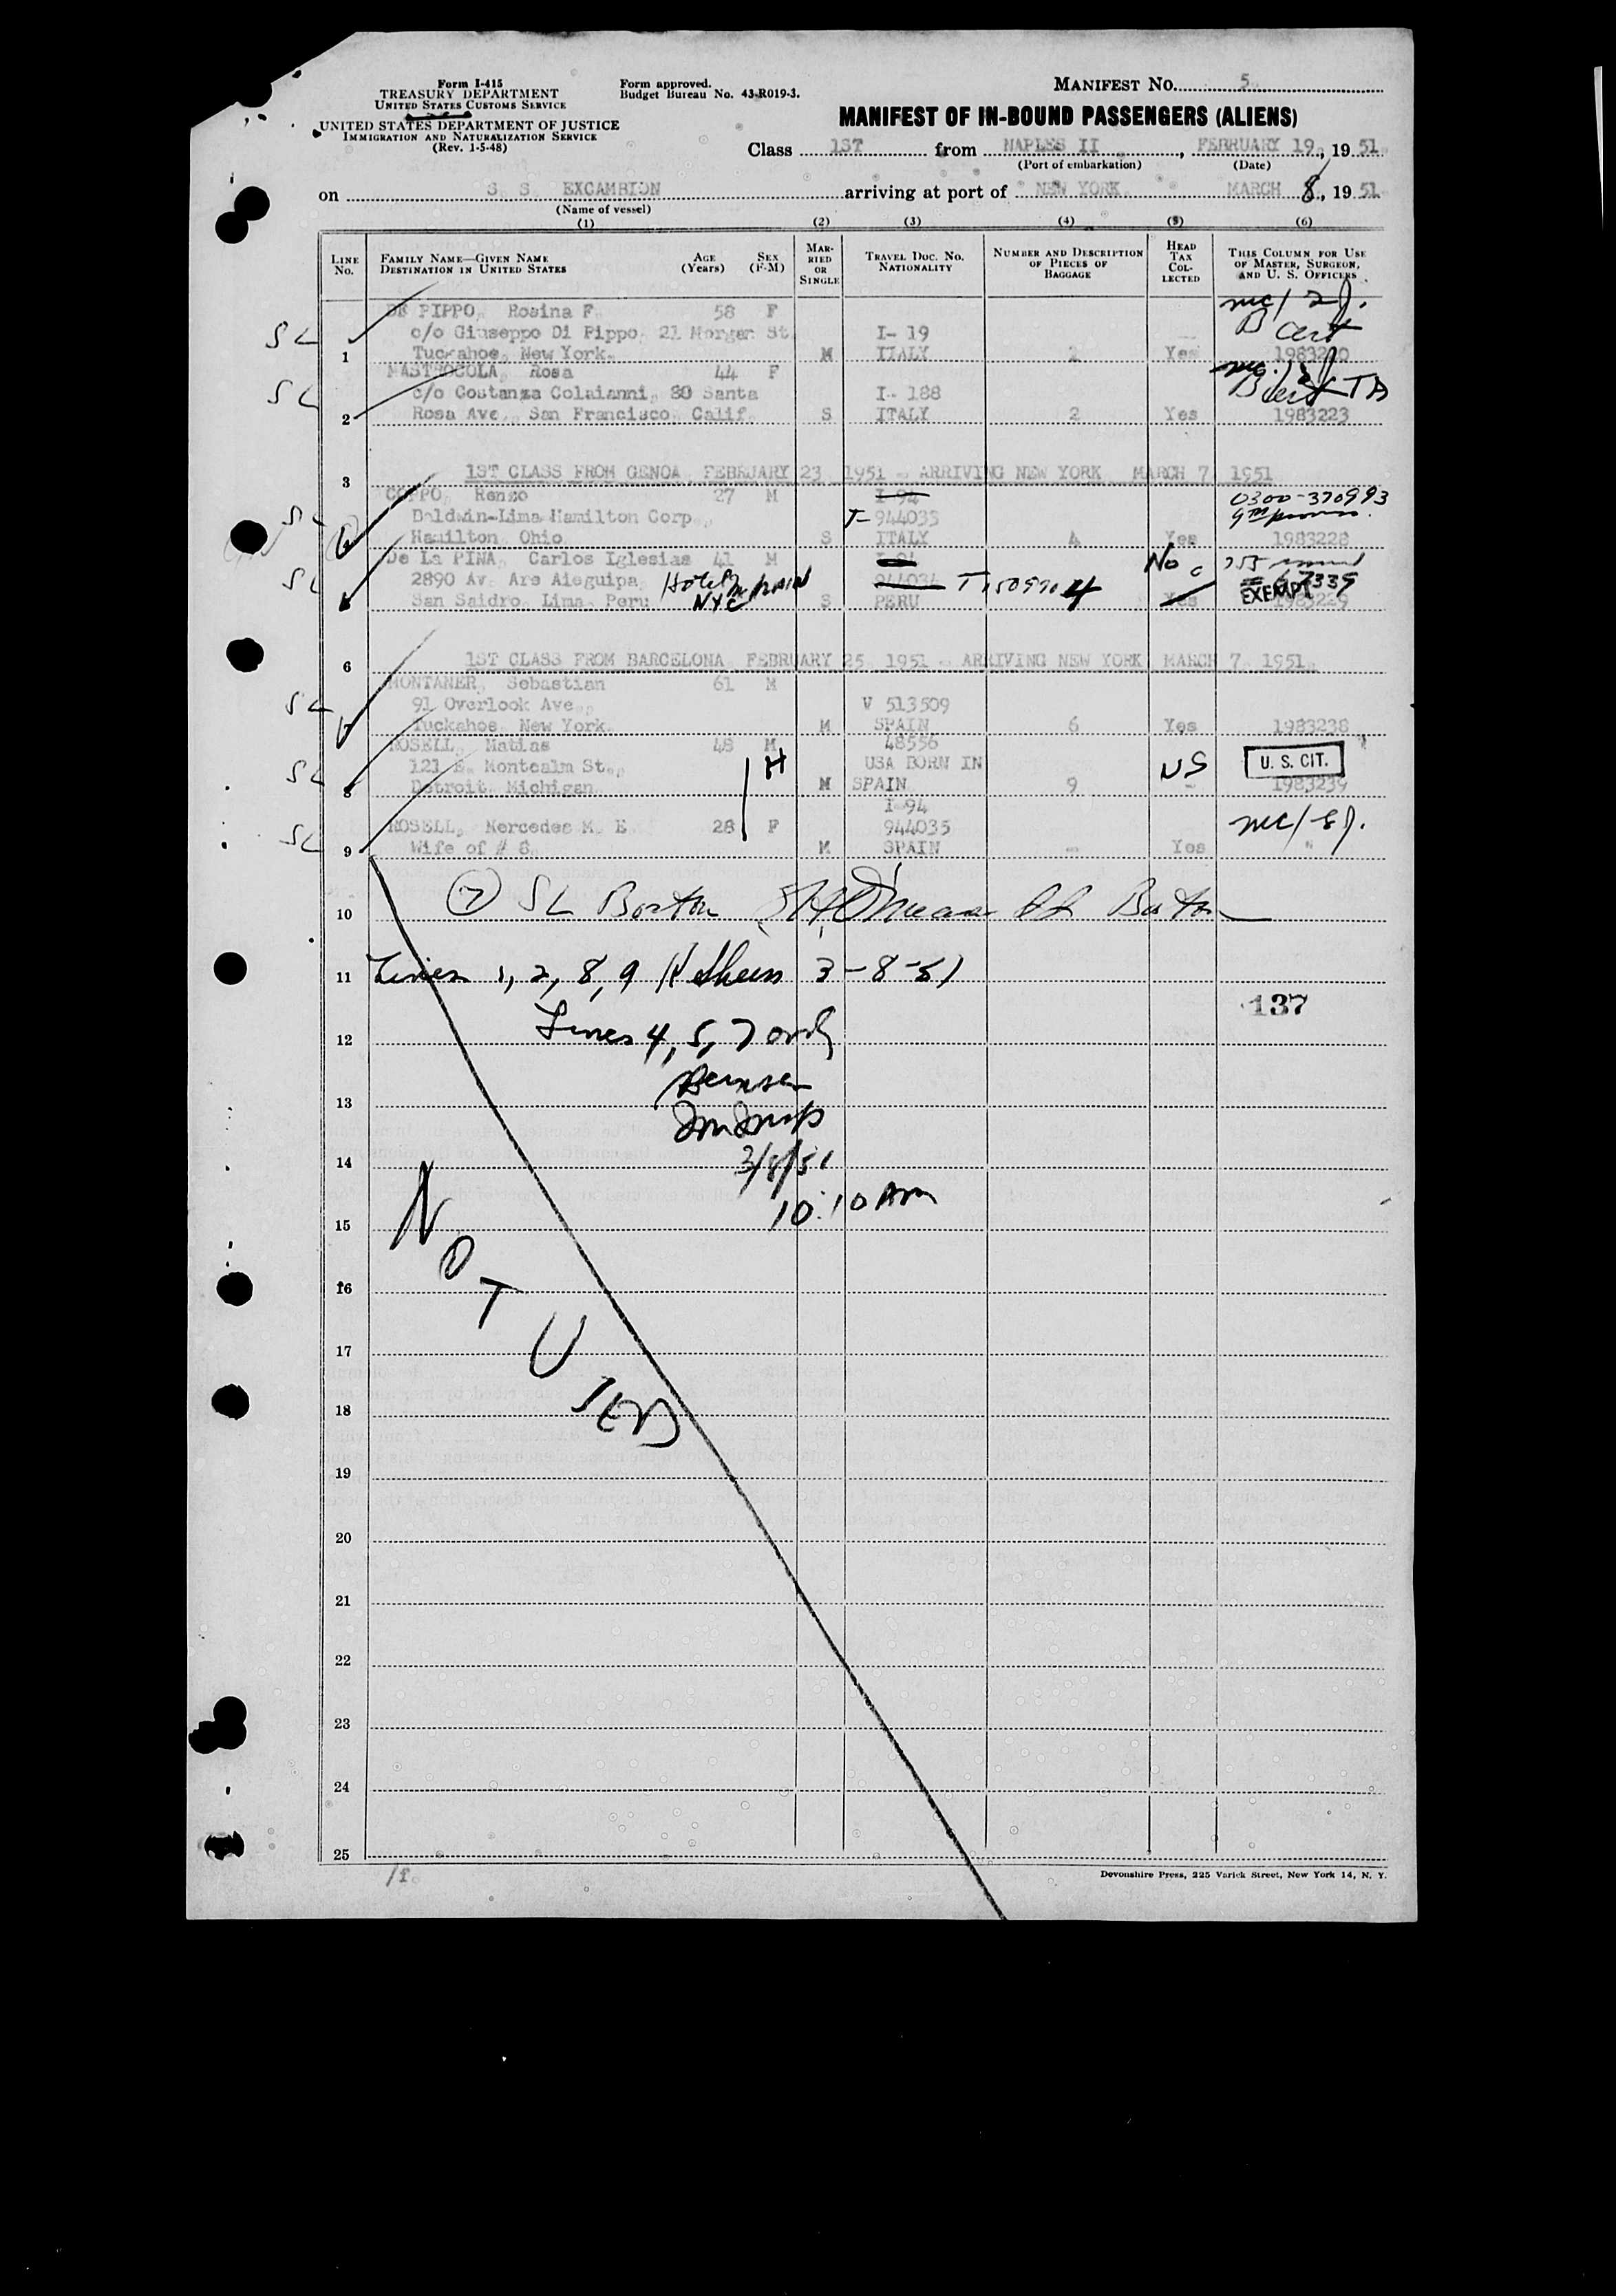 Form I-415
TREASURY DEPARTMENT
UNITED STATES CUSTOMS SERVICE
UNITED STATES DEPARTMENT OF JUSTICE
IMMIGRATION AND NATURALIZATION SERVICE
(Rev. 1-5-48)
Form approved.
Budget Bureau No. 43-R019-3.
MANIFEST No. 5
MANIFEST OF IN-BOUND PASSENGERS (ALIENS)
Class 1ST from NAPLES II, FEBRUARY 19, 1951
(Port of embarkation) (Date)
on S. S. EXCAMBION arriving at port of NEW YORK MARCH 8, 1951
(Name of vessel)
(1) (2) (3) (4) (5) (6)
LINE No.
FAMILY NAME—GIVEN NAME
DESTINATION IN UNITED STATES
AGE (Years)
SEX (F-M)
MARRIED OR SINGLE
TRAVEL DOC. NO. NATIONALITY
NUMBER AND DESCRIPTION OF PIECES OF BAGGAGE
HEAD TAX COLLECTED
THIS COLUMN FOR USE OF MASTER, SURGEON, AND U. S. OFFICERS
DE PIPPO, Rosina F. 58 F
SL c/o Giuseppe Di Pippo, 21 Morgan St. I- 19 B cert
1 Tuckahoe, New York. M ITALY 2 Yes
MASTROCOLA, Rosa 44 F
SL c/o Costanza Colaianni, 80 Santa I- 188 B cert
2 Rosa Ave., San Francisco, Calif. S ITALY 2 Yes 1983223
3 1ST CLASS FROM GENOA, FEBRUARY 23, 1951 - ARRIVING NEW YORK MARCH 7, 1951
COPPO, Renzo 27 M I-94 0300-370993
SL Baldwin-Lima Hamilton Corp., T-944033
Hamilton, Ohio. S ITALY 4 Yes 1983228
De La PINA, Carlos Iglesias 41 M I-94 No
SL 2890 Av. Are Aieguipa, Hotel 944034 T 1509904
San Saidro, Lima, Peru NYC S PERU Yes EXEMPT 1983229
6 1ST CLASS FROM BARCELONA, FEBRUARY 25, 1951 - ARRIVING NEW YORK MARCH 7, 1951.
MONTANER, Sebastian 61 M
SL 91 Overlook Ave., V 513509
Tuckahoe, New York. M SPAIN 6 Yes 1983238
ROSELL, Matias 48 M 48556
SL 121 E. Montcalm St., H USA BORN IN NS U. S. CIT.
8 Detroit, Michigan. M SPAIN 9 - 1983239
I-94
SL ROSELL, Mercedes M. E. 28 F 944035
9 Wife of # 8. M SPAIN - Yes "
10 (7) SL Boston
11 Lines 1, 2, 8, 9 3-8-51
137
12 Lines 4, 5, 7 only
13
14 3/8/51
15 10:10 AM
NOT USED
16
17
18
19
20
21
22
23
24
25
/f.
Devonshire Press, 225 Varick Street, New York 14, N. Y.